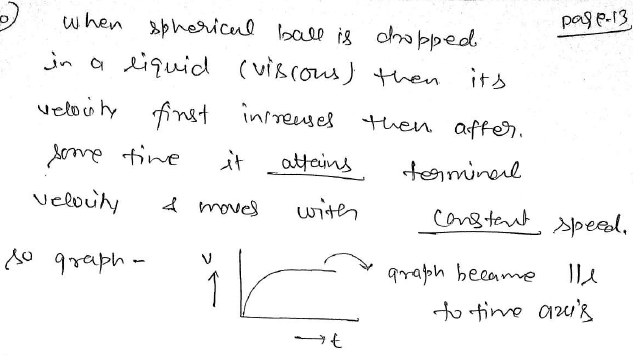 page-13
when spherical ball is dropped
in a liquid (viscous) then its
velocity first increases then after.
some time it attains terminal
velocity & moves with constant speed.
so graph -
v
graph became ||l
to time axis
t